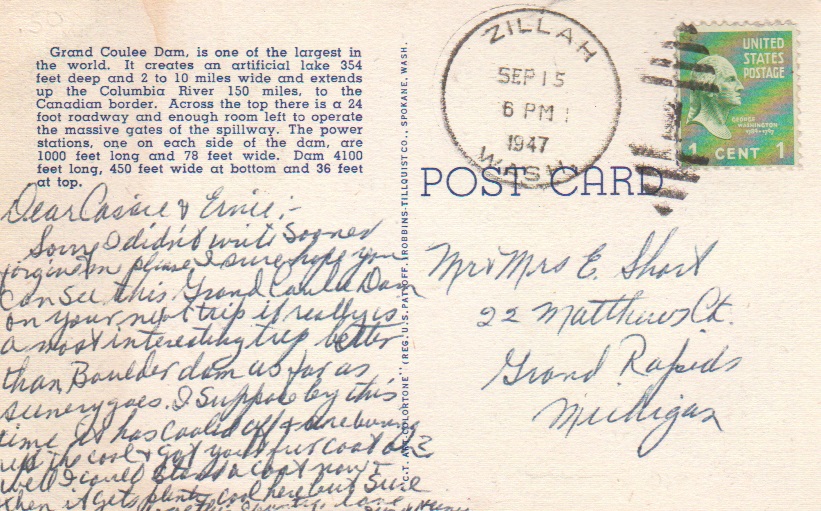 Grand Coulee Dam, is one of the largest in
the world. It creates an artificial lake 354
feet deep and 2 to 10 miles wide and extends
up the Columbia River 150 miles, to the
Canadian border. Across the top there is a 24
foot roadway and enough room left to operate
the massive gates of the spillway. The power
stations, one on each side of the dam, are
1000 feet long and 78 feet wide. Dam 4100
feet long, 450 feet wide at bottom and 36 feet
at top.
Dear Cassie & Ernie;-
Sorry I didn't write sooner
forgive me please, I sure hope you
can see this Grand Coulee Dam
on your next trip it really is
a most interesting trip better
than Boulder dam as far as
scenery goes. I suppose by this
time it has cooled off & are burning
up the coal & got your fur coat on?
well I could stand a coat now &
then it gets plenty cool here but sure
"C.T. ART-COLORTONE" (REG. U.S. PAT. OFF.) ROBBINS-TILLQUIST CO., SPOKANE, WASH.
ZILLAH
SEP 15
6 PM
1947
WASH.
UNITED
STATES
POSTAGE
GEORGE
WASHINGTON
1 CENT 1
POST CARD
Mr & Mrs E. Short
22 Matthews Ct.
Grand Rapids
Michigan